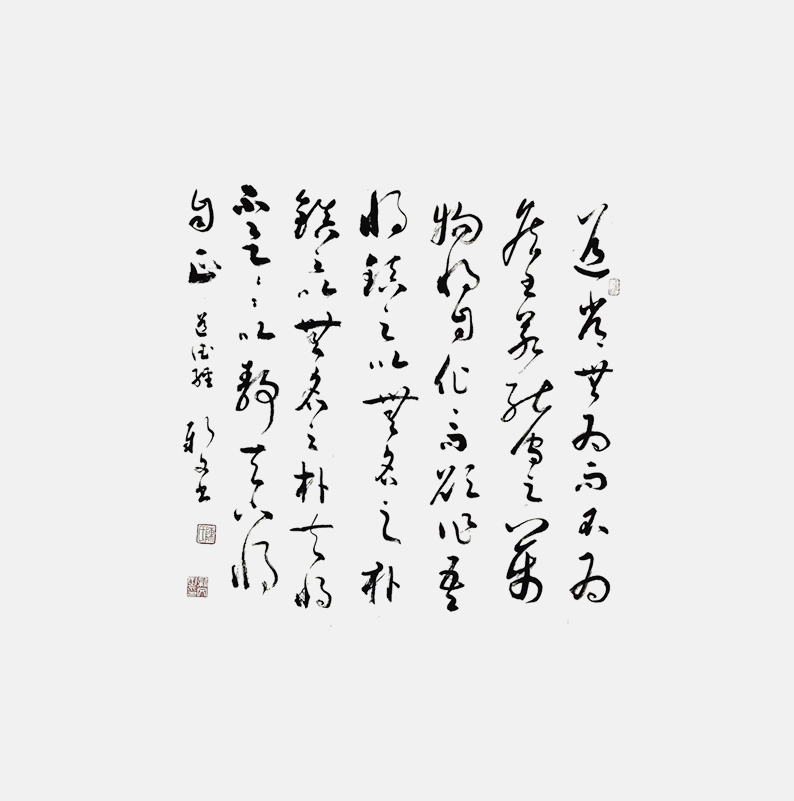 道常無為而不為
侯王若能守之萬
物將自化而欲作吾
將鎮之以無名之朴
鎮之以無名之朴夫將
不〻〻以靜天下將
自正 道德經 文書